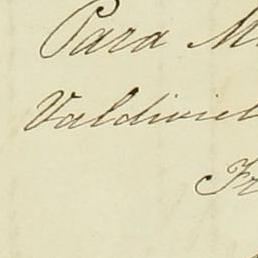 Para M
Valdiviel
Fr